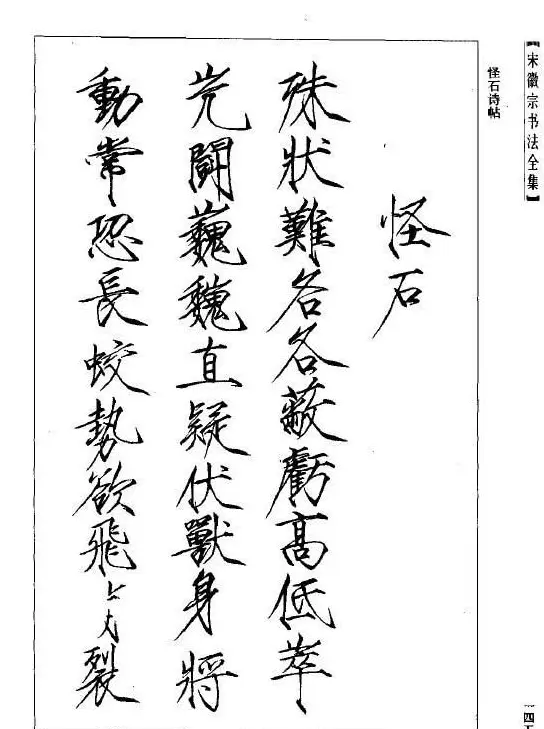 【宋徽宗书法全集】
怪石诗帖
怪石
殊狀難名各蔽虧高低萃
屼鬪巍巍直疑伏獸身將
動常恐長蛟勢欲飛裂